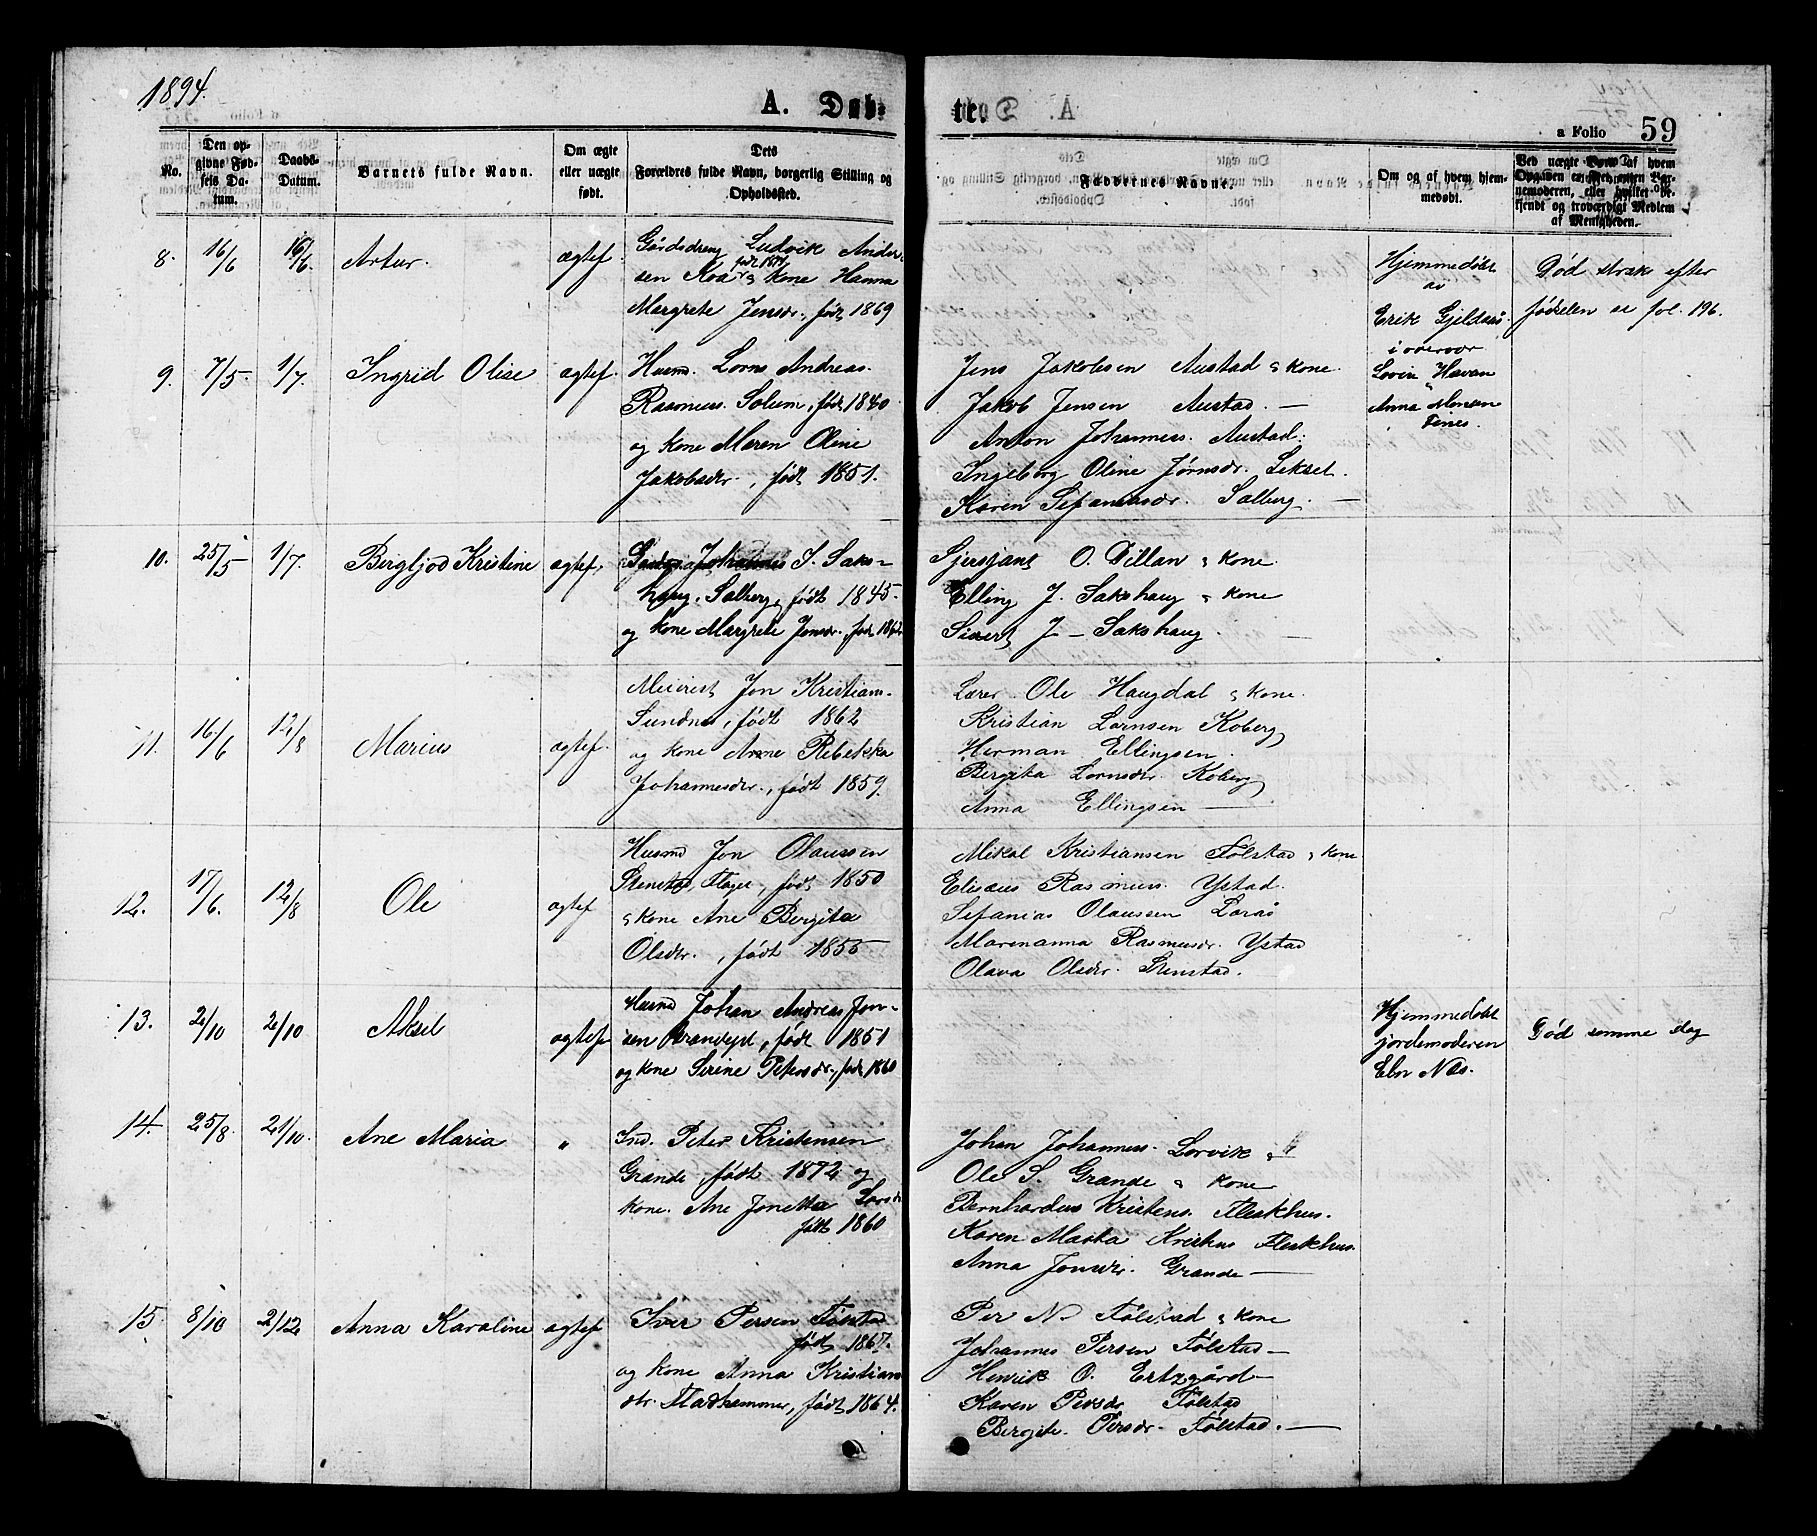 1894.
A. Døb-
te.
a Folio 59
No.
Den op-
givne Fød-
sels Da-
tum.
Daabs-
Datum.
Barnets fulde Navn.
Om ægte
eller uægte
født.
Dets
Forældres fulde Navn, borgerlig Stilling og
Opholdssted.
Faddernes Navne.
Om og af hvem hjem-
medøbt.
Ved uægte Børn af hvem
Opgaven er skeet,
nemoderen, eller hvilket be-
kjendt og troværdigt Medlem
af Menigheden.
8. 16/6 16/6. Artur. ægtef.
Gårdsdreng Ludvik Ander-
født 1871
sen Roa & kone Hanna
Margrete Jensdr., født 1869
Hjemmedøbt
av
Erik Gjildaas.
i overvær
Lovin Havan
Anna Monsen
Fines.
Død strak efter
fødselen se fol. 196.
9. 7/5. 1/7. Ingrid Olise ægtef.
Husmd. Lorns Andreas
Rasmuss. Solum, født 1840
og kone Maren Oline
Jakobsdr., født 1851.
Jens Jakobsen Austad & kone
Jakob Jensen Austad. —
Anton Johanness. Austad.
Ingeborg Oline Jørnsdr. Lekset.
Karen Sefaniasdr. Salberg. —
10. 25/5 1/7. Bergljod Kristine ægtef.
Johannes J. Saks-
haug. Salberg, født 1845.
og kone Margrete Jonsdr., født 1862
Sjersjant O. Dillan & kone
Elling J. Sakshaug & kone
Sivert J — Sakshaug.
11. 16/6 12/8 Marius ægtef.
Meierist Jon Kristian-
Sundnes, født 1862
og kone Anne Rebekka
Johannesdr., født 1859.
Lærer Ole Haugdal & kone.
Kristian Lornsen Koberg
Herman Ellingsen
Bergita Lornsdr. Koberg
Anna Ellingsen —
12. 17/6. 12/8 Ole ægtef
Husmd Jon Olaussen
Stenstad, Flaget, født 1850
& kone Ane Bergita
Olsdr., født 1855
Mikal Kristiansen Følstad & kone
Elisæus Rasmuss. Ystad.
Sefanias Olaussen Laraas
Marenanna Rasmusdr. Ystad
Olava Olsdr. Stenstad.
13. 2/10 2/10 Aksel ægtef
Husmd Johan Andreas Jon-
sen Brandegt, født 1851
og kone Sirine Petersdr., født 1860
Hjemmedøbt
jordemoderen
Eln Næs.
Død samme dag
14. 25/8. 21/10. Ane Maria "
Ind. Peter Kristensen
Grande, født 1872 og
kone. Ane Jonetta Larsdr
født 1860
Johan Johanness. Lorvik &
Ole S. Grande & kone
Bernhardus Kristens. Fleskhus.
Karen Marta Fleskhus.
Anna Jonsdr. Grande —
15 8/10 2/12 Anna Karoline ægtef
Iver Persen Følstad
født 1867.
og kone Anna Kristian
dtr. Fladhammer, født 1864.
Per N Følstad & kone
Johannes Persen Følstad —
Henrik O. Ertzgård —
Karen Persdr Følstad
Bergite. Persdr. Følstad. —